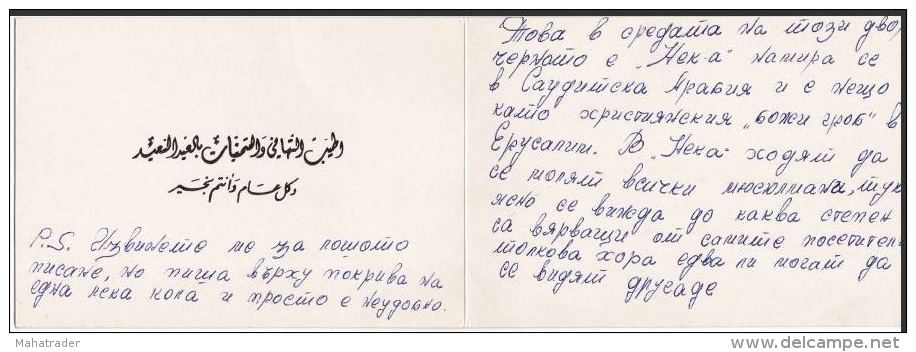 اطيب التهاني والتمنيات بالعيد السعيد
وكل عام وأنتم بخير
P.S. Извинете ме за лошото
писане, но пиша върху покрива на
една лека кола и просто е неудобно.
Това в средата на този двор
черното е „Мека" намира се
в Саудитска Арабия и е нещо
като християнския „Божи гроб" в
Ерусалим. В „Мека" ходят да
се молят всички мюсюлмани, тук
ясно се вижда до каква степен
са вярващи от самите посетители
толкова хора едва ли могат да
се видят другаде
Mahatrader
delcampe.net